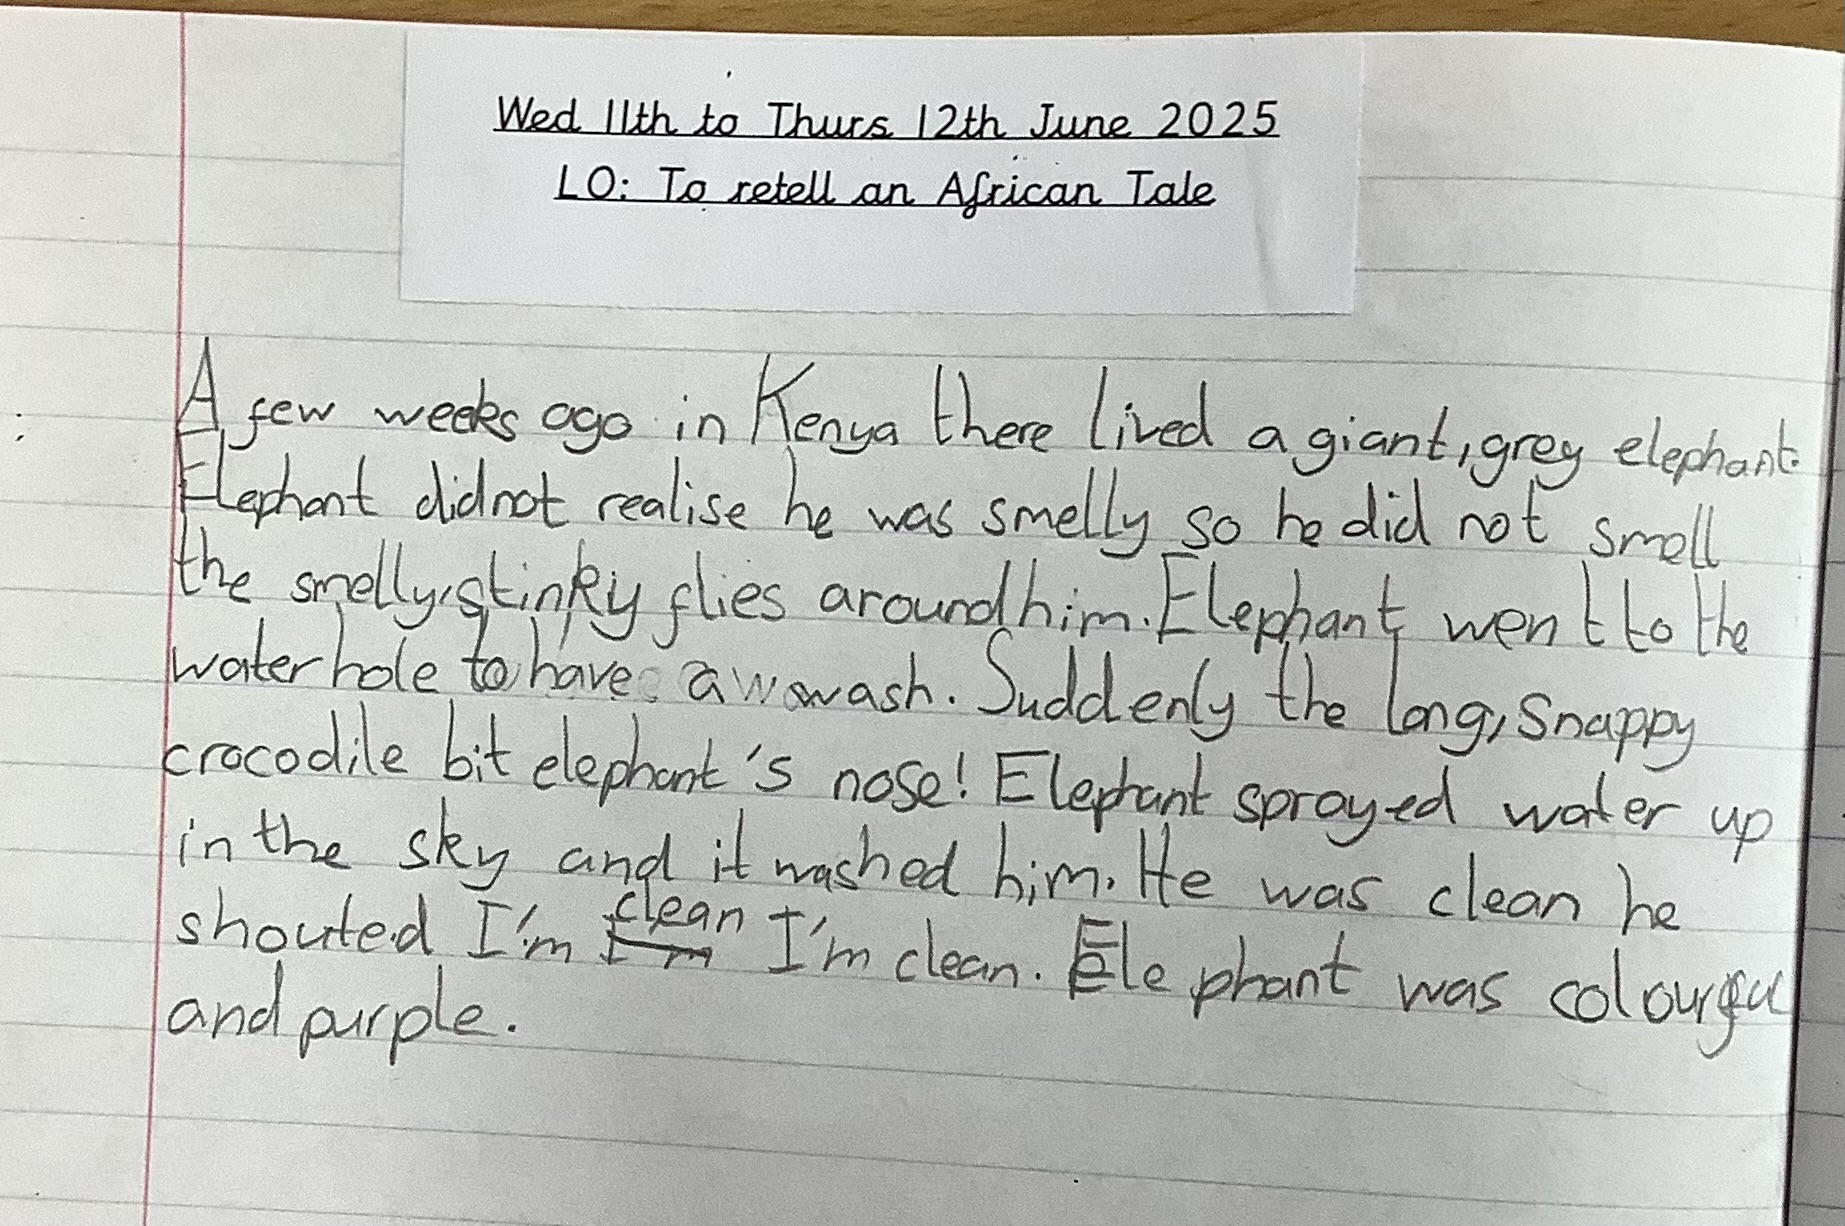 Wed 11th to Thurs 12th June 2025
LO: To retell an African Tale
A few weeks ago in Kenya there lived a giant, grey elephant.
Elephant did not realise he was smelly so he did not smell
the smelly, stinky flies around him. Elephant went to the
water hole to have a wash. Suddenly the long, snappy
crocodile bit elephant's nose! Elephant sprayed water up
in the sky and it washed him. He was clean he
shouted I'm clean I'm clean. Elephant was colourful
and purple.